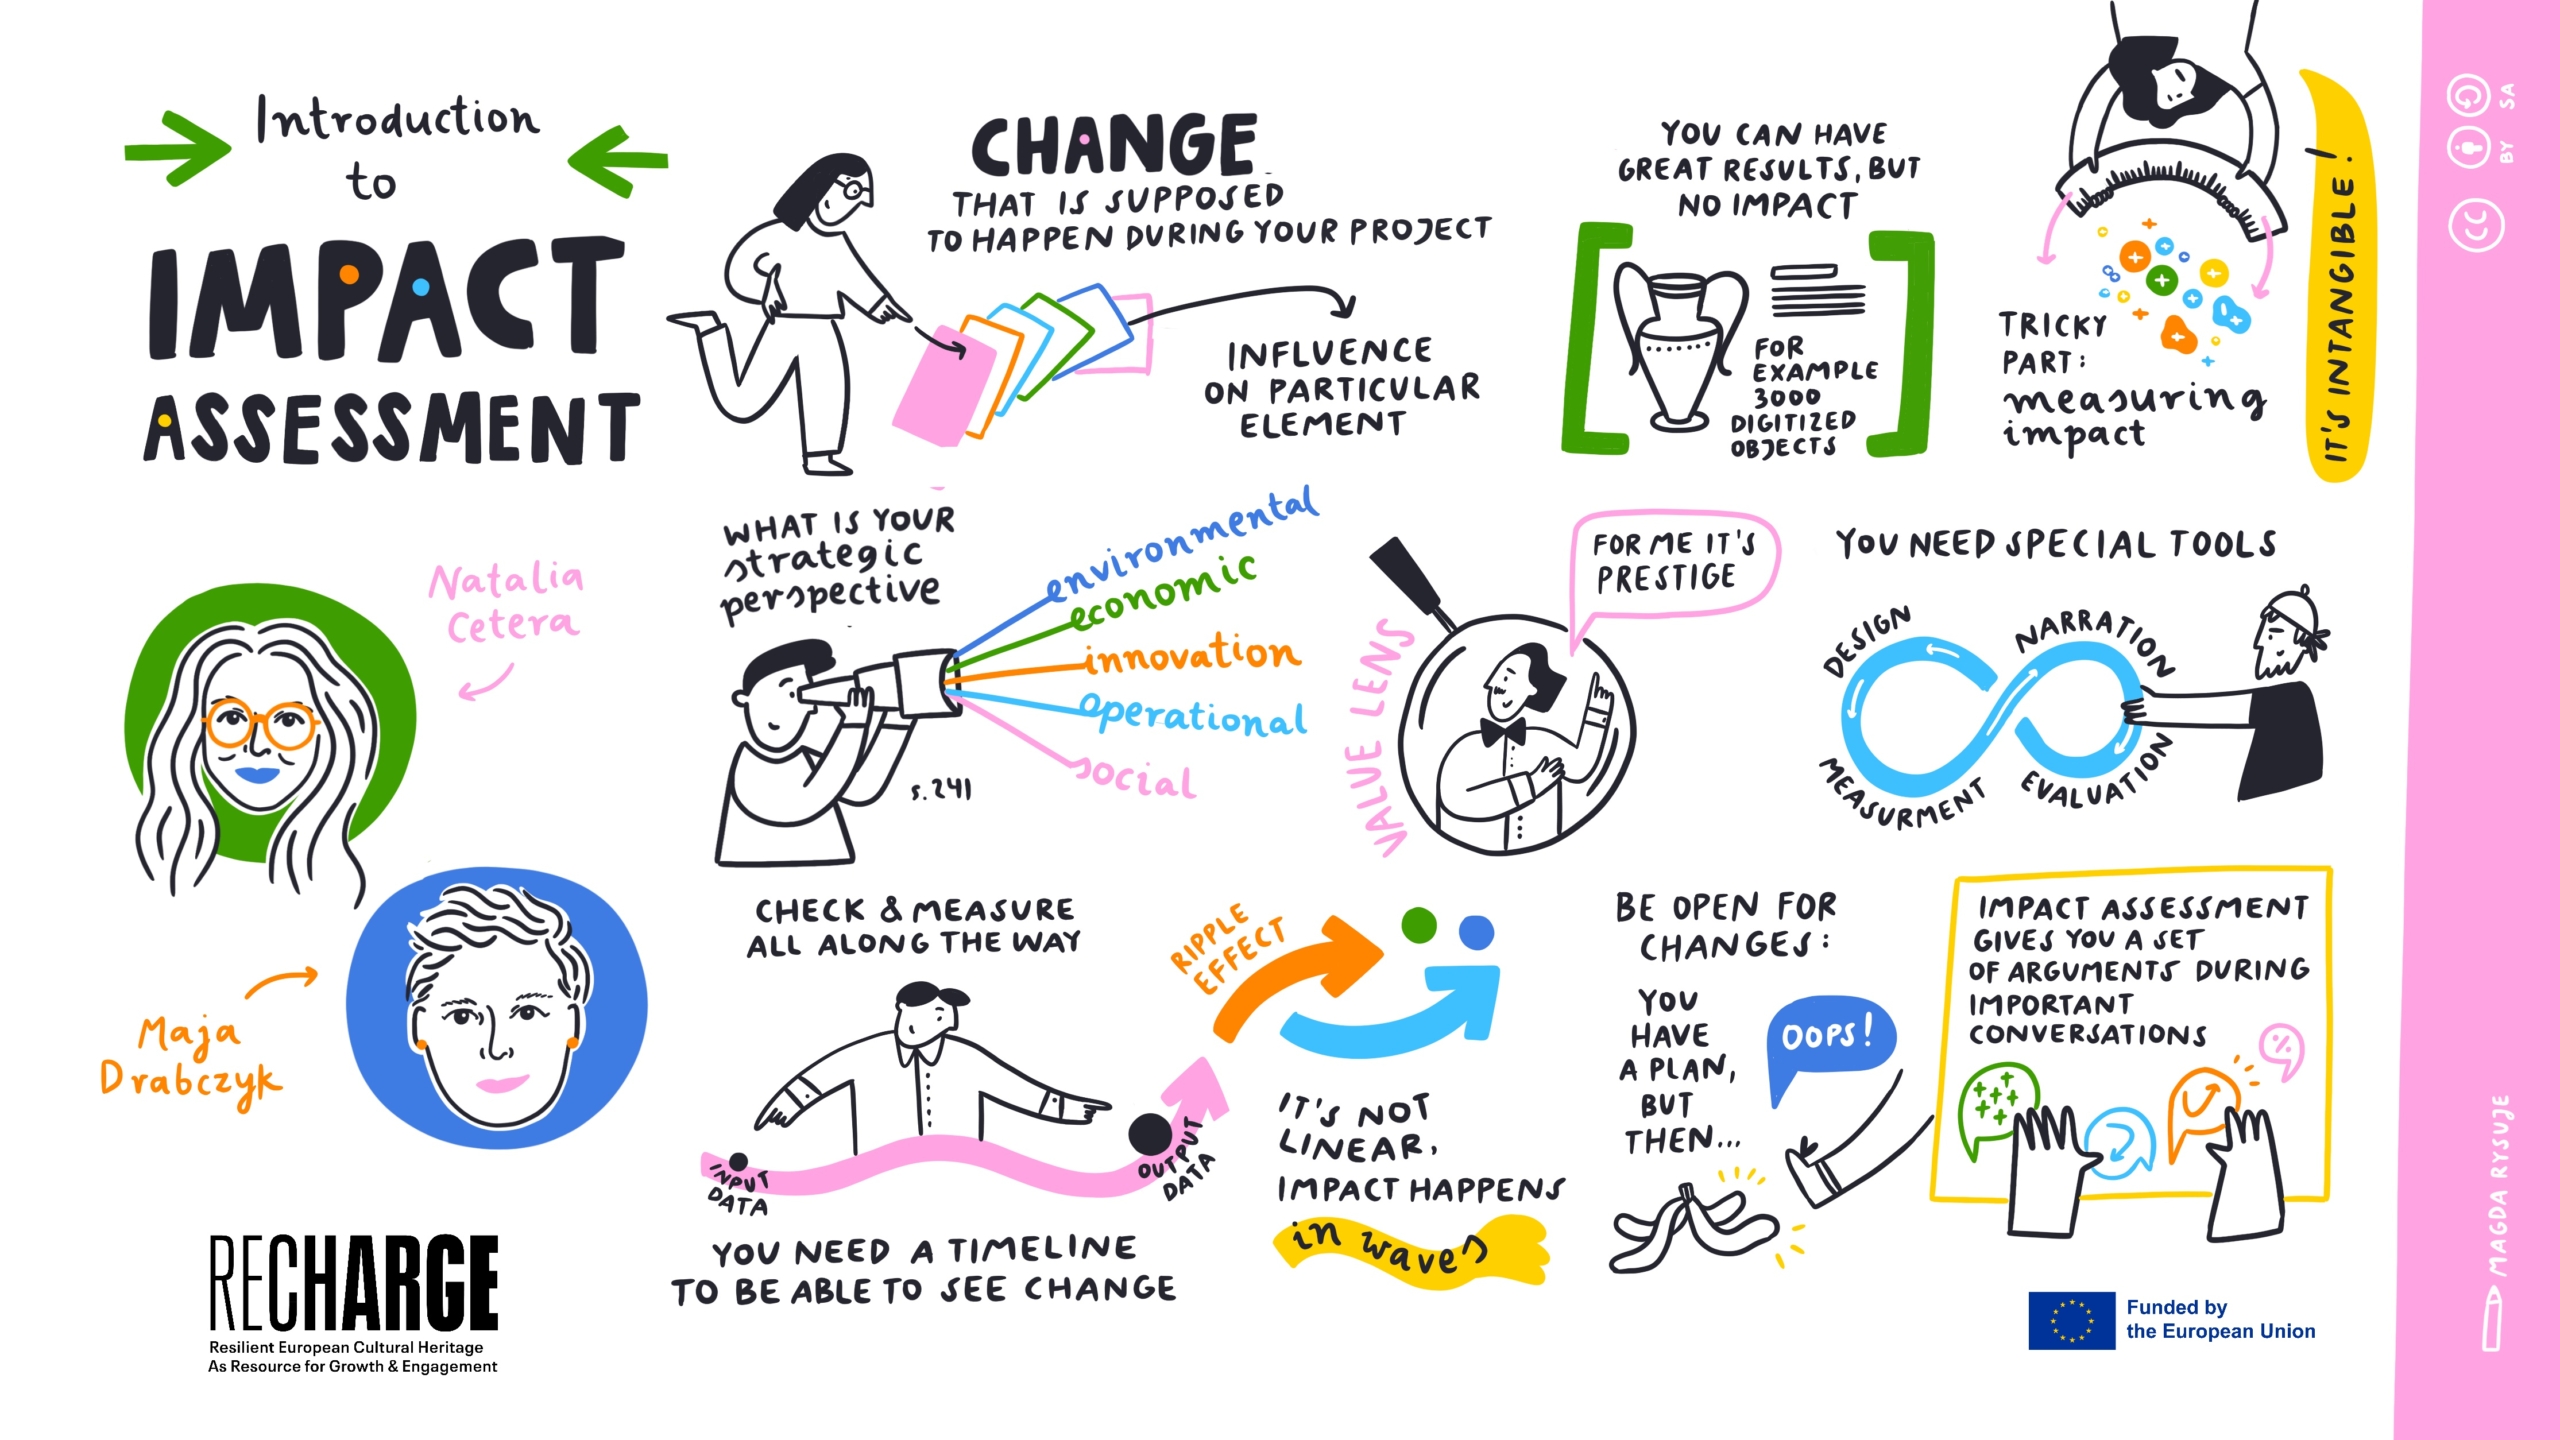 Introduction
to
IMPACT
ASSESSMENT
CHANGE
THAT IS SUPPOSED
TO HAPPEN DURING YOUR PROJECT
INFLUENCE
ON PARTICULAR
ELEMENT
YOU CAN HAVE
GREAT RESULTS, BUT
NO IMPACT
FOR
EXAMPLE
3000
DIGITIZED
OBJECTS
TRICKY
PART:
measuring
impact
IT'S INTANGIBLE!
Natalia
Cetera
Maja
Drabczyk
WHAT IS YOUR
strategic
perspective
environmental
economic
innovation
operational
social
s.241
VALUE LENS
FOR ME IT'S
PRESTIGE
YOU NEED SPECIAL TOOLS
DESIGN
NARRATION
MEASURMENT
EVALUATION
CHECK & MEASURE
ALL ALONG THE WAY
INPUT
DATA
OUTPUT
DATA
YOU NEED A TIMELINE
TO BE ABLE TO SEE CHANGE
RIPPLE
EFFECT
IT'S NOT
LINEAR,
IMPACT HAPPENS
in waves
BE OPEN FOR
CHANGES:
YOU
HAVE
A PLAN,
BUT
THEN...
OOPS!
IMPACT ASSESSMENT
GIVES YOU A SET
OF ARGUMENTS DURING
IMPORTANT
CONVERSATIONS
%
RECHARGE
Resilient European Cultural Heritage
As Resource for Growth & Engagement
Funded by
the European Union
CC BY SA
MAGDA RYSUJE